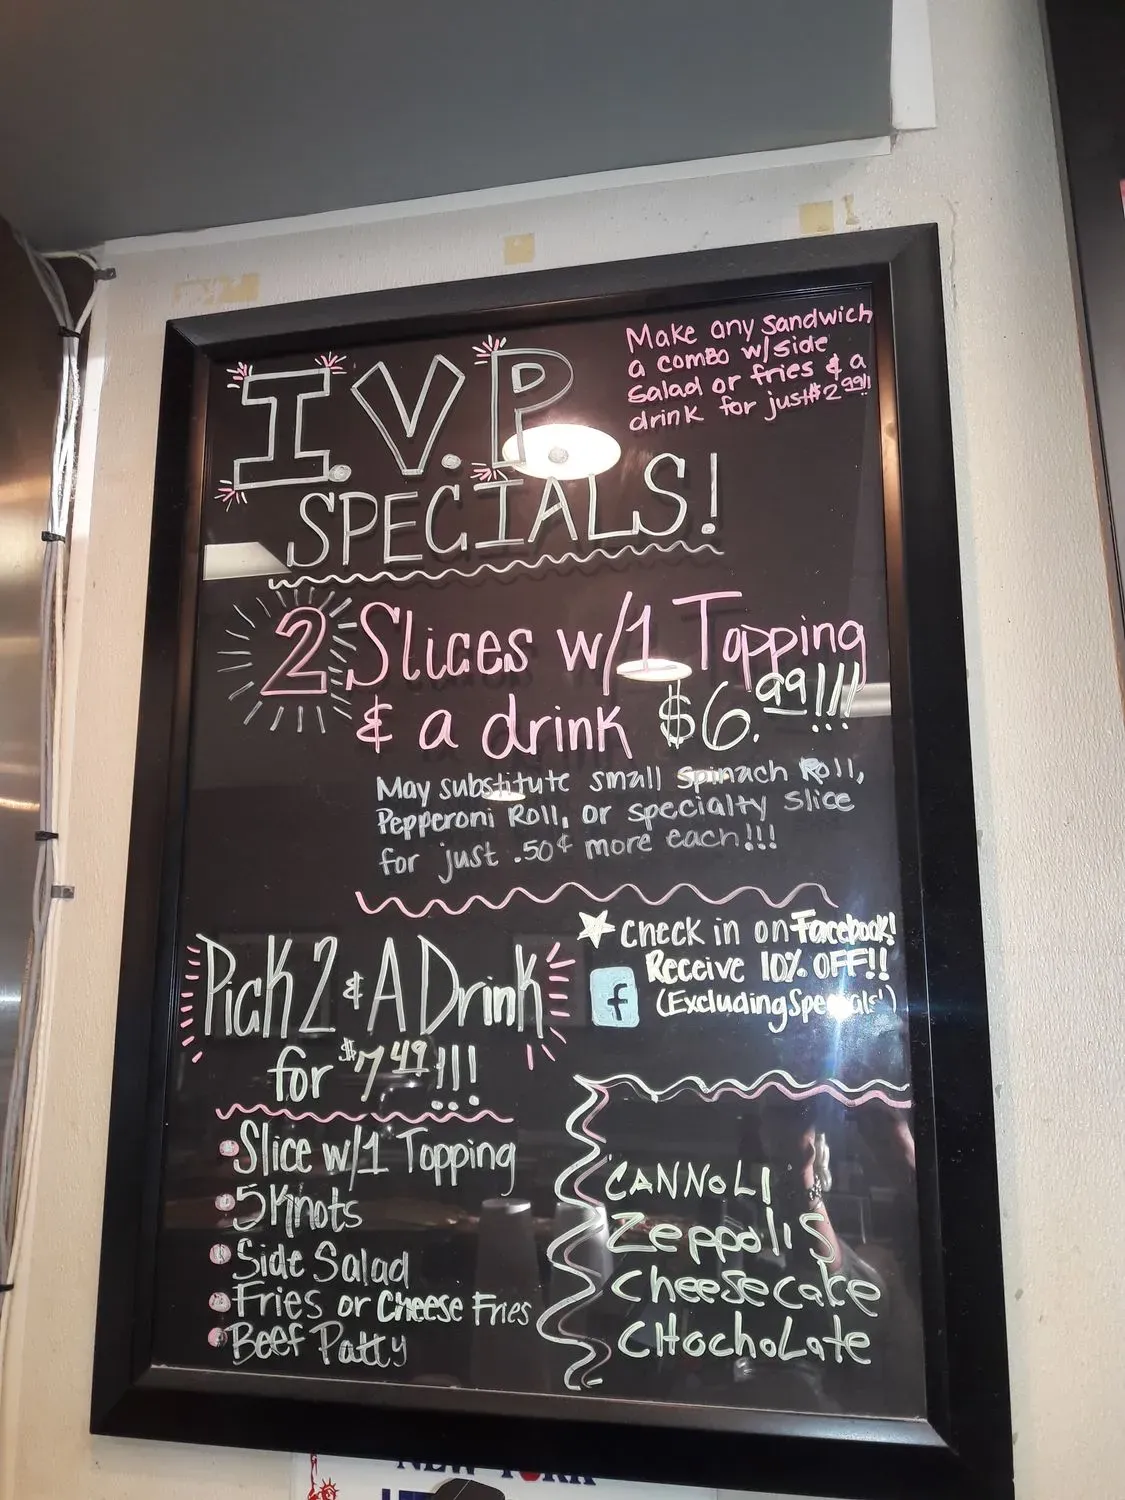 I.V.P
SPECIALS!
Make any Sandwich
a combo w/side
Salad or fries & a
drink for just $2.99!!
2 Slices w/1 Topping
& a drink $6.99!!!
May substitute small Spinach Roll,
Pepperoni Roll, or specialty Slice
for just .50¢ more each!!!
Check in on Facebook!
Receive 10% OFF!!
f
(Excluding Specials!)
Pick 2 & A Drink
for $7.49!!!
Slice w/1 Topping
5 Knots
Side Salad
Fries or Cheese Fries
Beef Patty
CANNOLI
Zeppolis
Cheesecake
CHochoLate
NEW YORK